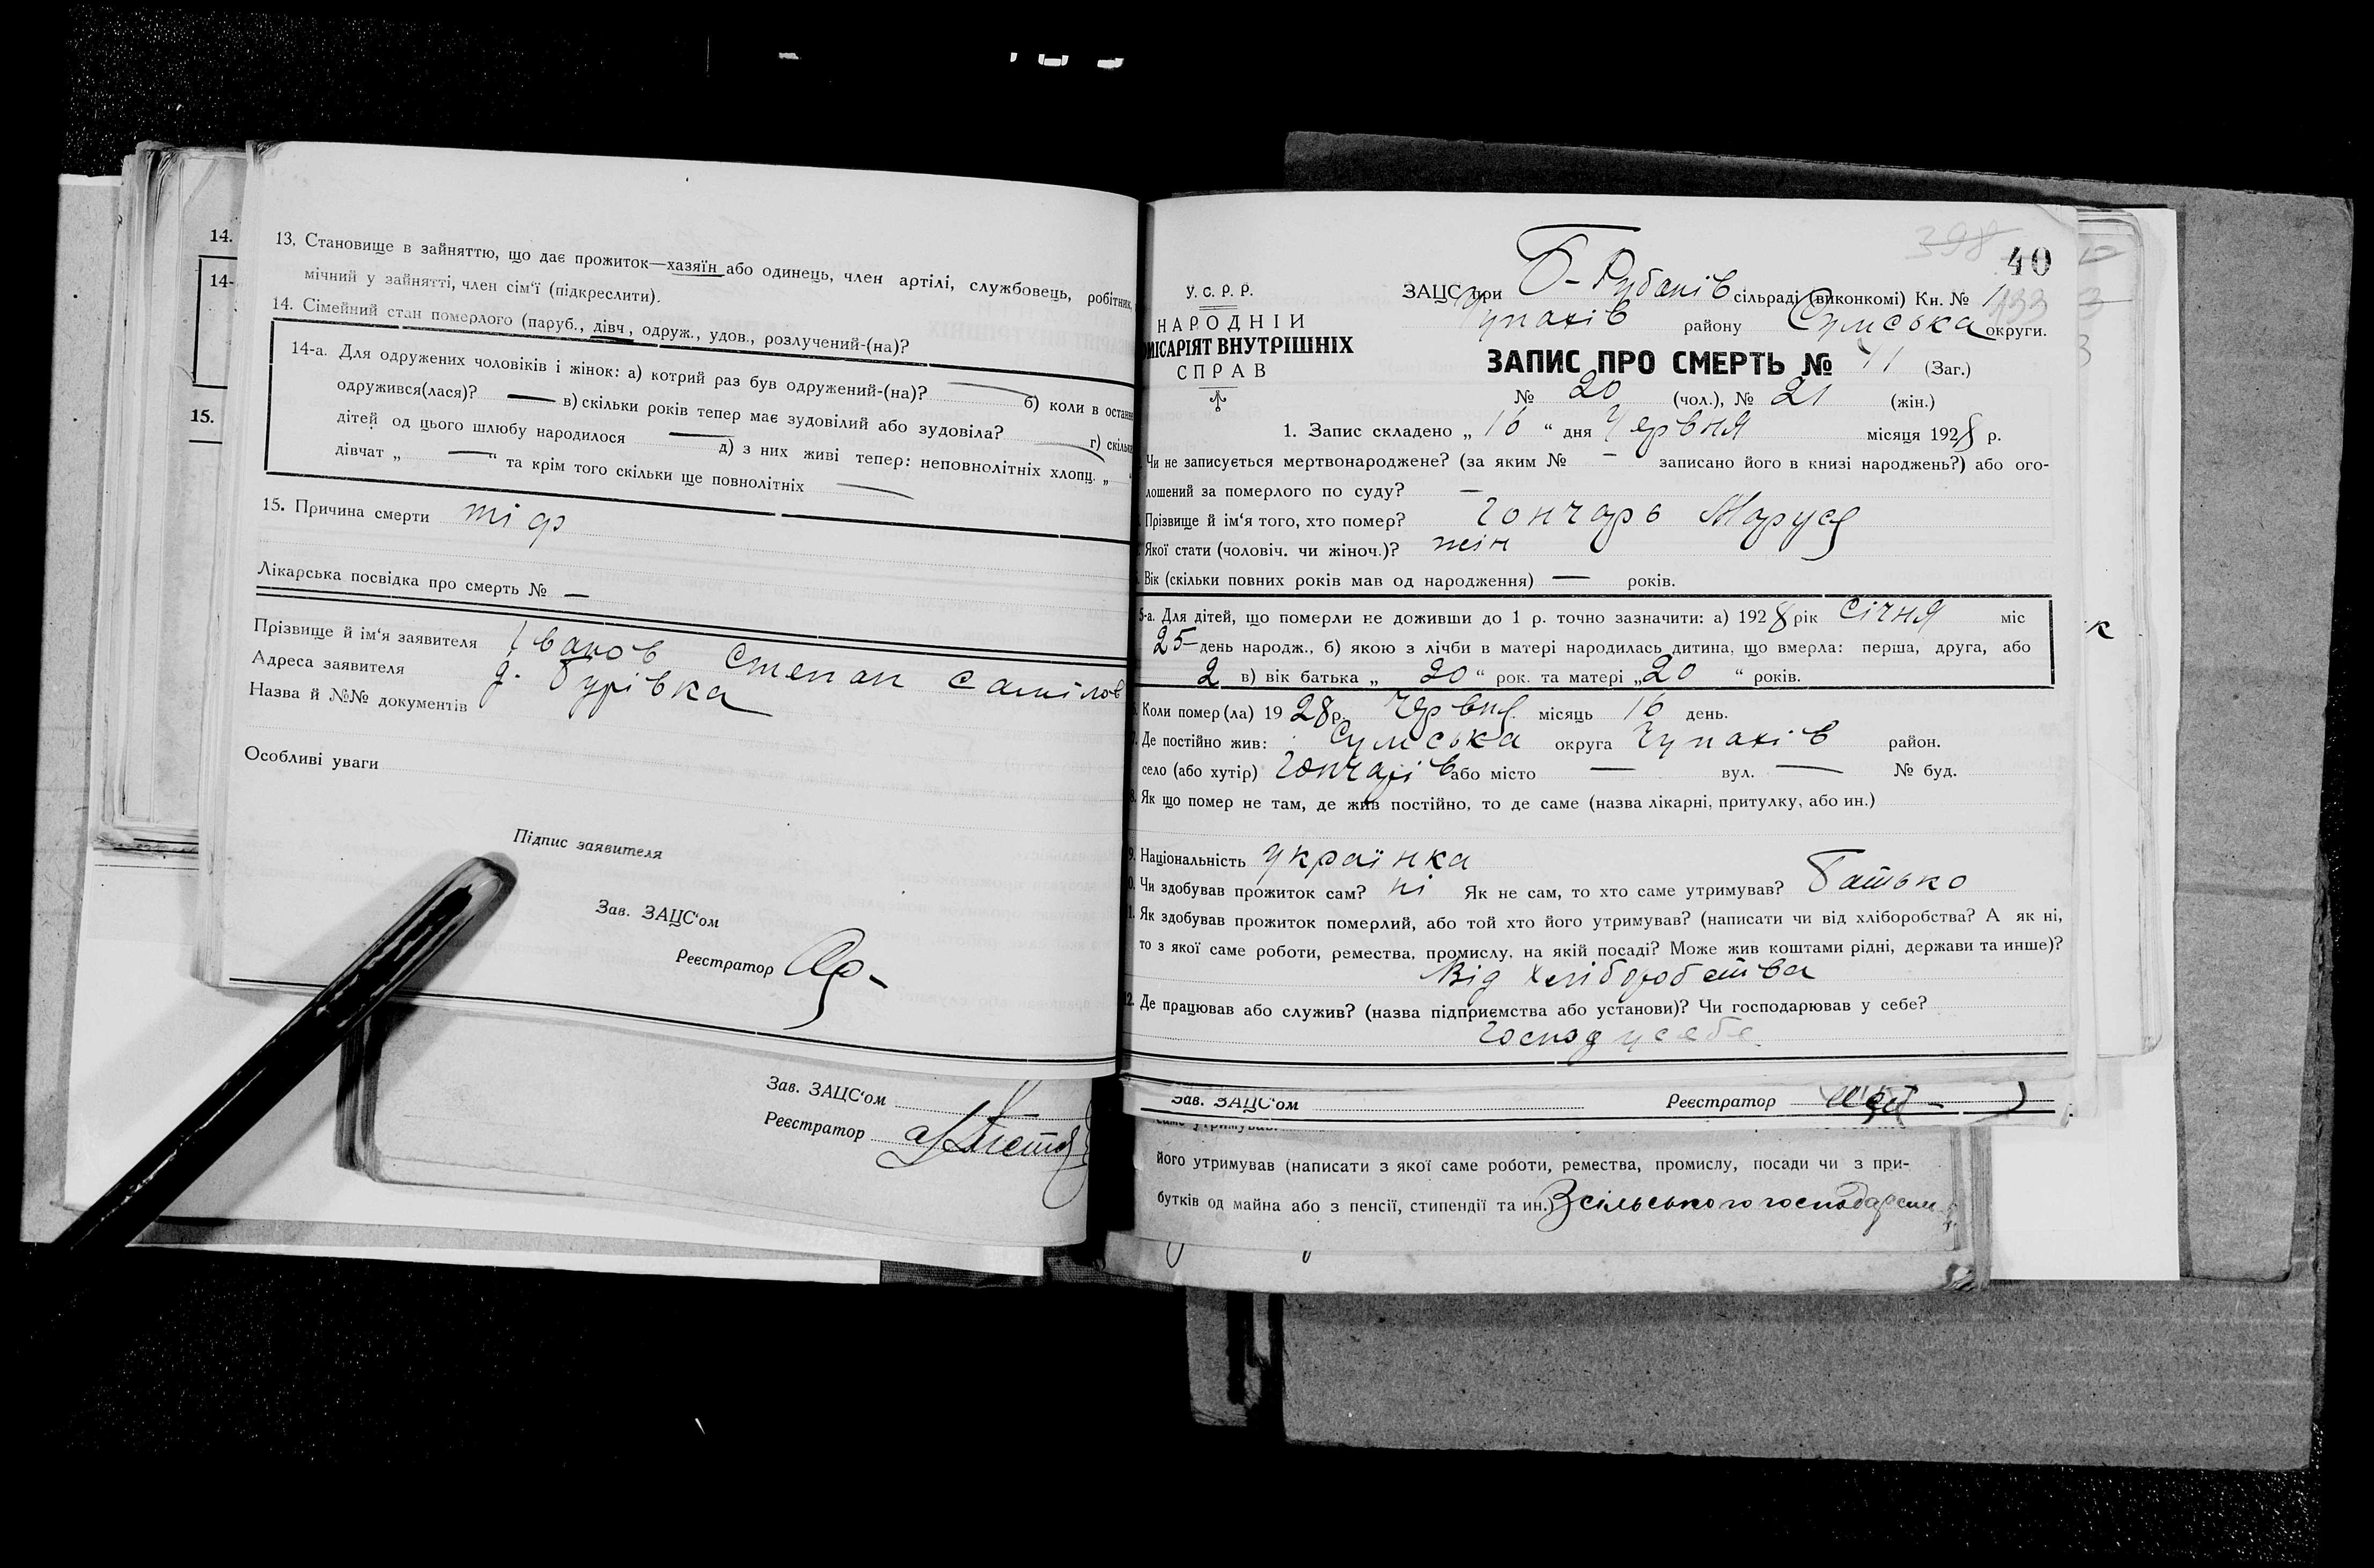 14.
14-
15.
13. Становище в зайняттю, що дає прожиток—хазяїн або одинець, член артілі, службовець, робітник,
мічний у зайнятті, член сім'ї (підкреслити).
14. Сімейний стан померлого (паруб., дівч., одруж., удов., розлучений-(на)?
14-а. Для одружених чоловіків і жінок: а) котрий раз був одружений-(на)? — б) коли в останн
одружився(лася)? — в) скільки років тепер має зудовілий або зудовіла? — г) скільки
дітей од цього шлюбу народилося — д) з них живі тепер: неповнолітніх хлопц. „
дівчат „ — “ та крім того скільки ще повнолітніх —
15. Причина смерти тіф
Лікарська посвідка про смерть № —
Прізвище й ім'я заявителя Іванов Степан
Адреса заявителя д. Гурівка
Назва й №№ документів
Особливі уваги
Підпис заявителя
Зав. ЗАЦС'ом
Реєстратор
Зав. ЗАЦС'ом
Реєстратор
398
40
У. С. Р. Р.
НАРОДНІЙ
МІСАРІЯТ ВНУТРІШНІХ
СПРАВ
ЗАЦС при Б-Рубанів сільраді (виконкомі) Кн. № 1
Чупахів району Сумська округи.
ЗАПИС ПРО СМЕРТЬ № 41 (Заг.)
№ 20 (чол.), № 21 (жін.)
1. Запис складено „ 16 “ дня Червня місяця 1928 р.
Чи не записується мертвонароджене? (за яким № — записано його в книзі народжень?) або ого-
лошений за померлого по суду? —
Прізвище й ім'я того, хто помер? Гончарь Маруся
Якої стати (чоловіч. чи жіноч.)? жін
Вік (скільки повних років мав од народження) — років.
5-а. Для дітей, що померли не доживши до 1 р. точно зазначити: а) 1928 рік Січня міс
25 день народж., б) якою з лічби в матері народилась дитина, що вмерла: перша, друга, або
2 в) вік батька „ 20 “ рок. та матері „ 20 “ років.
Коли помер(ла) 1928 р. Червня місяць 16 день.
Де постійно жив: Сумська округа Чупахів район.
село (або хутір) Гончарів або місто — вул. — № буд.
8. Як що помер не там, де жив постійно, то де саме (назва лікарні, притулку, або ин.)
9. Національність українка
0. Чи здобував прожиток сам? ні Як не сам, то хто саме утримував? Батько
1. Як здобував прожиток померлий, або той хто його утримував? (написати чи від хліборобства? А як ні,
то з якої саме роботи, ремества, промислу, на якій посаді? Може жив коштами рідні, держави та инше)?
Від хліборобства
12. Де працював або служив? (назва підприємства або установи)? Чи господарював у себе?
Господ у себе
Зав. ЗАЦС'ом Реєстратор
саме утримував.
його утримував (написати з якої саме роботи, ремества, промислу, посади чи з при-
бутків од майна або з пенсії, стипендії та ин.) З сільського
к